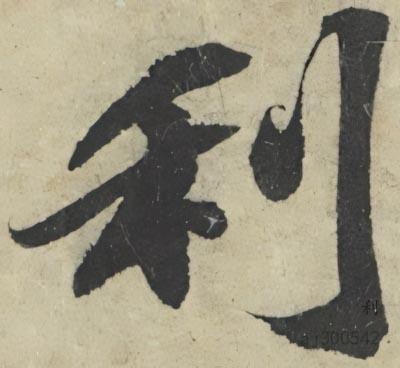 利
利
jj300542